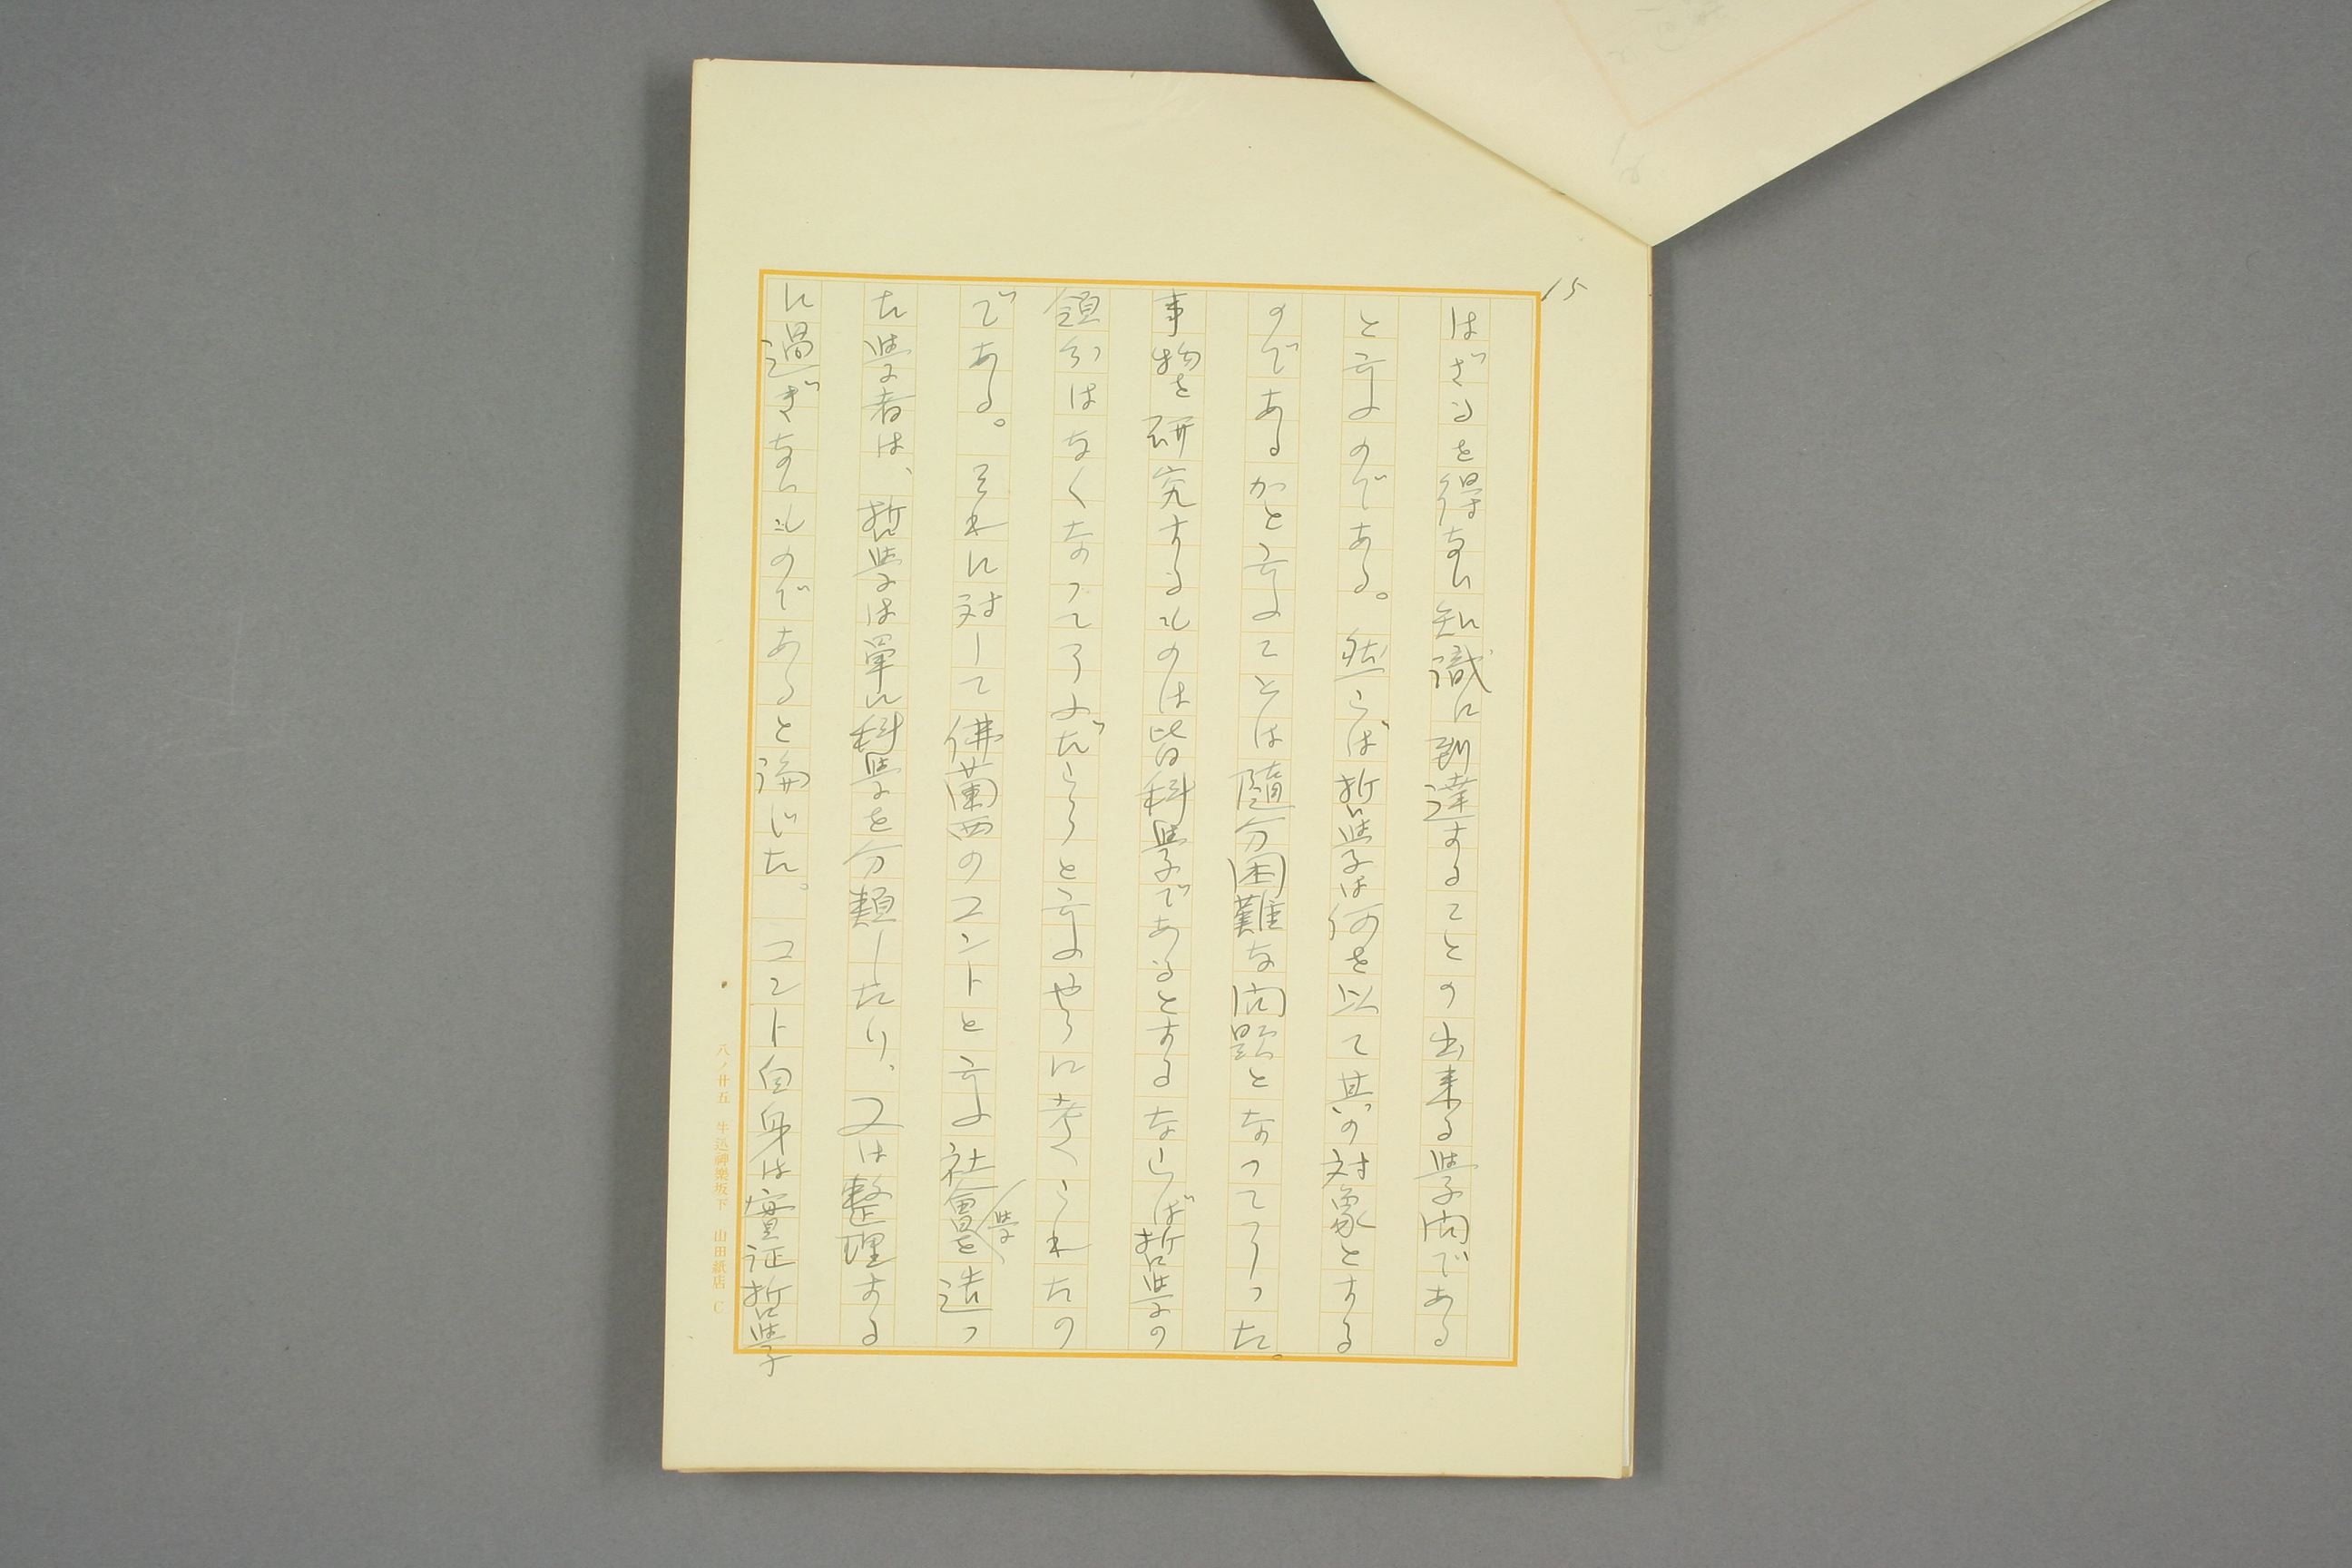 15
はざるを得ない知識に到達することの出来る學問である
と云ふのである。然らば哲學は何を以て其の対象とする
のであるかと云ふことは隨分困難な問題となつてしまつた。
事物を研究するものは皆科學であるとするならば哲學の
領分はなくなつてしまふだらうと云ふやうに考へられたの
である。それに対して佛蘭西のコントと云ふ社會學を造つ
た學者は、哲學は單に科學を分類したり、又は整理する
に過ぎないものであると論じた。コント自身は實証哲學
八ノ廿五 牛込神樂坂下 山田紙店 C